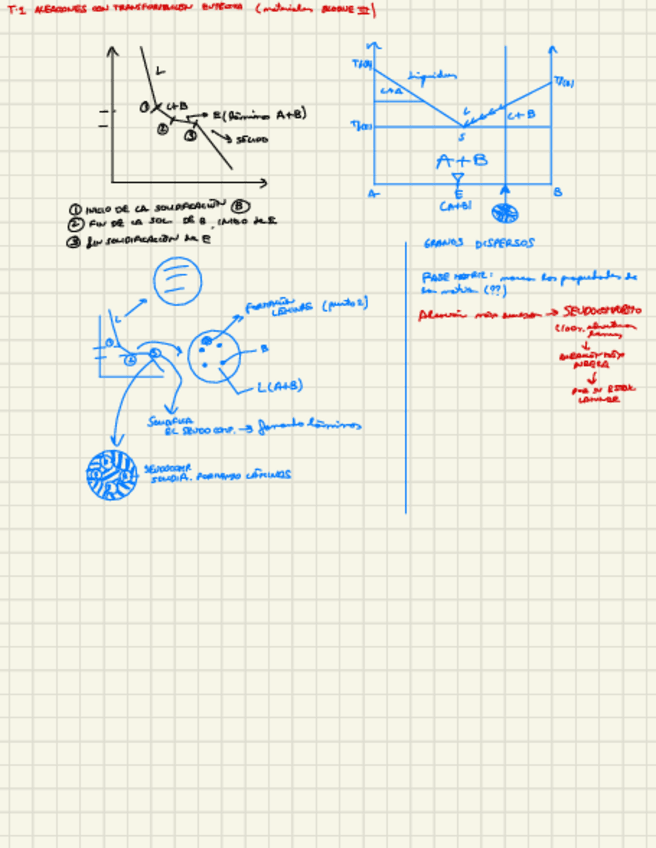 T.1 ALEACIONES CON TRANSFORMACIÓN EUTECTICA (materiales BLOQUE III)
L
① L+B
E (láminas A+B)
②
③
SÓLIDO
① INICIO DE LA SOLIDIFICACIÓN Ⓑ
② FIN DE LA SOL. DE B, INICIO DE E
③ FIN SOLIDIFICACIÓN DE E
T(A)
Liquidus
L+A
L
L+B
T(B)
T(E)
S
A+B
A
E
B
(A+B)
L
①
②
③
FORMACIÓN
LÁMINAS (punto 2)
B
L(A+B)
SOLIDIFICA
EL SEUDOCOMP. → formando láminas
SEUDOCOMP.
SOLIDIF. FORMANDO LÁMINAS
GRANOS DISPERSOS
FASE MATRIZ: marcan las propiedades de
la matriz (??)
Aleación más → SEUDOCOMPUESTO
(100%
ALEACIÓN MÁS
POR SU ESTRUC.
LAMINAR